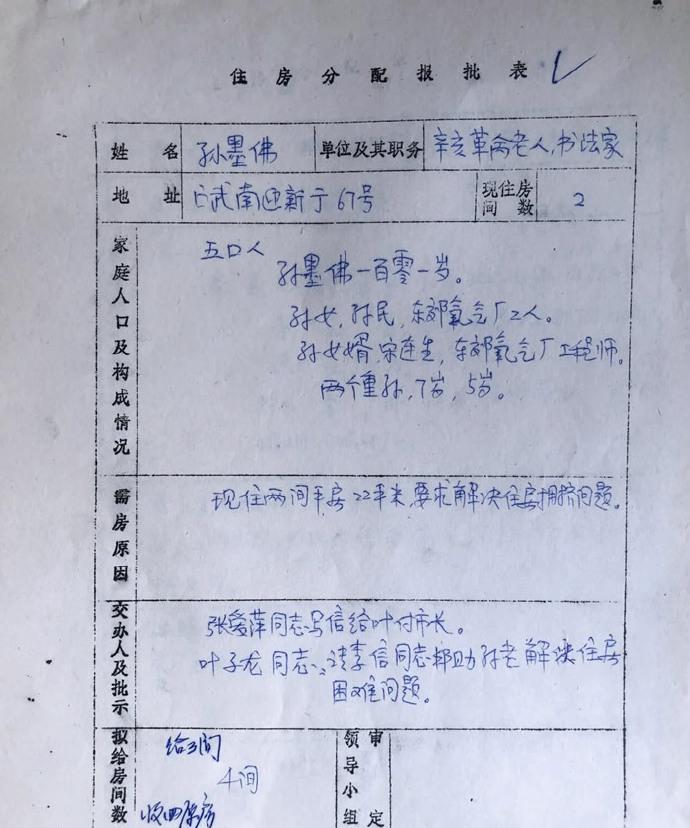 住房分配报批表
姓名 孙墨佛 单位及其职务 辛亥革命老人、书法家
地址 宣武南迎新于67号 现住房间数 2
家庭人口及构成情况
五口人
孙墨佛一百零一岁。
孙女,孙民,东郊氧气厂工人。
孙女婿,宋连生,东郊氧气厂工程师。
两个重孙,7岁,5岁。
需房原因
现住两间平房22平米,要求解决住房拥挤问题。
交办人及批示
张爱萍同志写信给叶付市长。
叶子龙同志:请李信同志帮助孙老解决住房
困难问题。
拟给房间数
给3间
4间
收回原房
领导小组审定